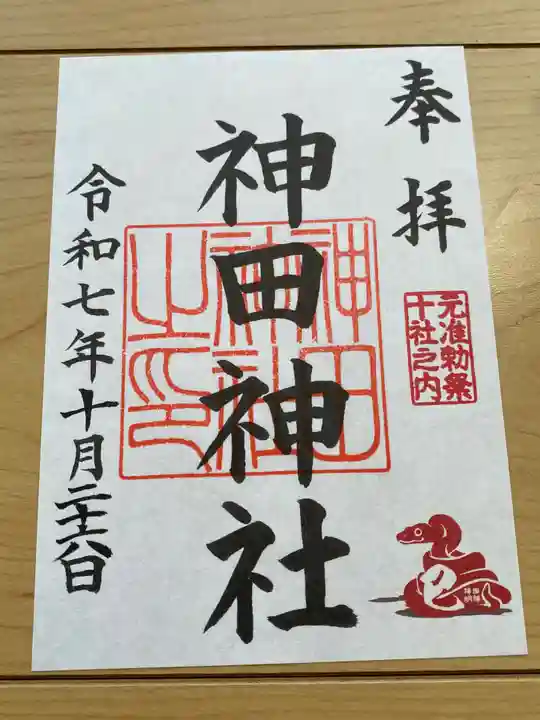 奉拝
元准勅祭
十社之内
神田神社
神田
神社
之印
巳
令和七年十月二十六日